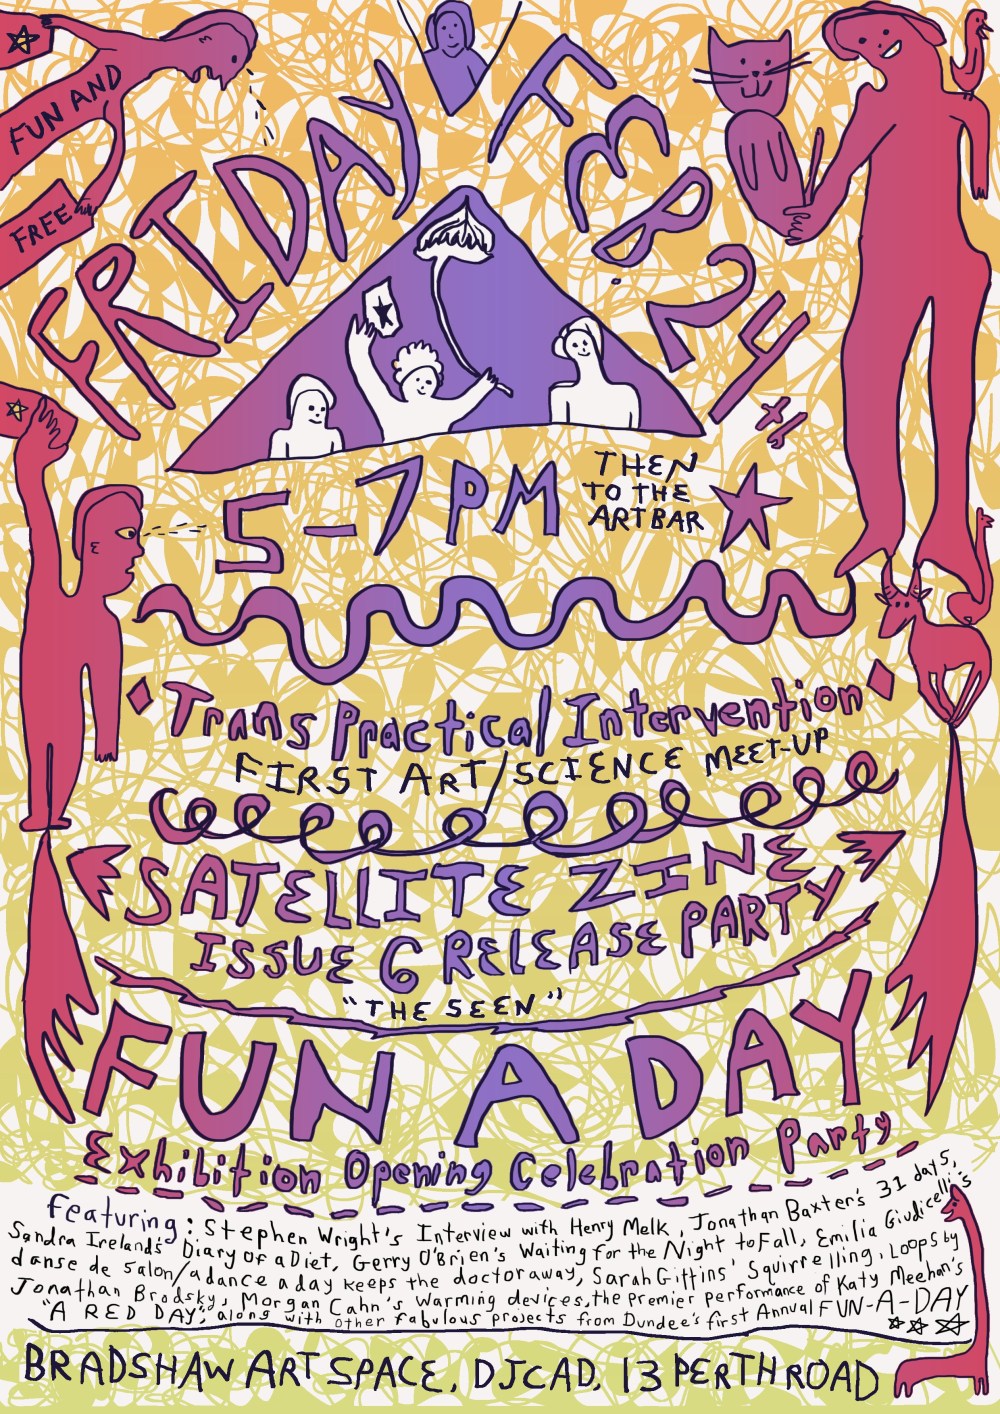 FUN AND
FREE
FRIDAY FEB 24th
5-7 PM
THEN
TO THE
ART BAR
Trans Practical Intervention
FIRST ART/SCIENCE MEET-UP
SATELLITE ZINE
ISSUE 6 RELEASE PARTY
"THE SEEN"
FUN A DAY
Exhibition Opening Celebration Party
Featuring: Stephen Wright's Interview with Henry Melk, Jonathan Baxter's 31 days,
Sandra Ireland's Diary of a Diet, Gerry O'Brien's Waiting for the Night to Fall, Emilia Giudicelli's
danse de salon/a dance a day keeps the doctor away, Sarah Gittins' Squirrelling, Loops by
Jonathan Brodsky, Morgan Cahn's Warming devices, the premier performance of Katy Meehan's
"A RED DAY", along with other fabulous projects from Dundee's first Annual FUN-A-DAY
BRADSHAW ART SPACE, DJCAD, 13 PERTH ROAD